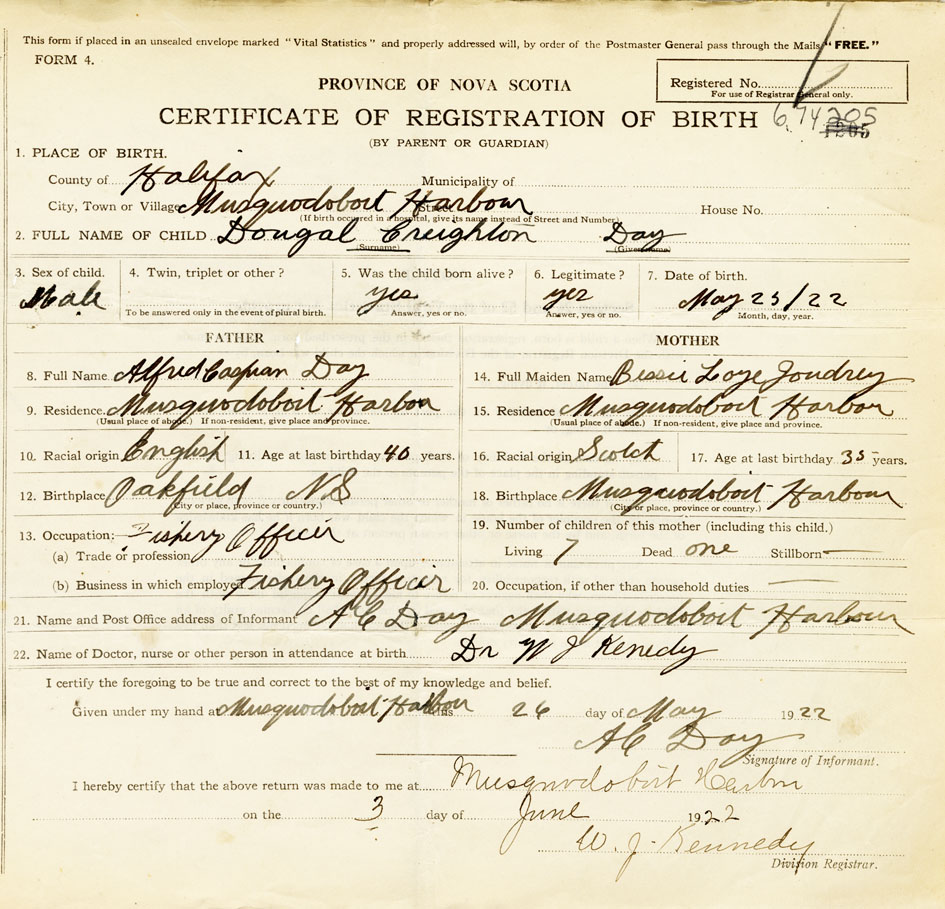 This form if placed in an unsealed envelope marked "Vital Statistics" and properly addressed will, by order of the Postmaster General pass through the Mails "FREE."
FORM 4.
PROVINCE OF NOVA SCOTIA
Registered No.
For use of Registrar General only.
CERTIFICATE OF REGISTRATION OF BIRTH 6,74 205
(BY PARENT OR GUARDIAN)
1. PLACE OF BIRTH.
County of Halifax Municipality of
City, Town or Village Musquodoboit Harbour Street House No.
(If birth occurred in a hospital, give its name instead of Street and Number)
2. FULL NAME OF CHILD Dougal Creighton Day
(Surname) (Given name)
3. Sex of child. 4. Twin, triplet or other? 5. Was the child born alive? 6. Legitimate? 7. Date of birth.
Male yes yes May 23/22
To be answered only in the event of plural birth. Answer, yes or no. Answer, yes or no. Month, day, year.
FATHER MOTHER
8. Full Name Alfred Caspian Day 14. Full Maiden Name Bessie Loye Joudrey
9. Residence. Musquodoboit Harbor 15. Residence Musquodoboit Harbor
(Usual place of abode.) If non-resident, give place and province. (Usual place of abode.) If non-resident, give place and province.
10. Racial origin English 11. Age at last birthday 40 years. 16. Racial origin Scotch 17. Age at last birthday 35 years.
12. Birthplace Oakfield NS 18. Birthplace Musquodoboit Harbour
(City or place, province or country.) (City or place, province or country.)
13. Occupation:— Fishery Officer 19. Number of children of this mother (including this child.)
(a) Trade or profession Living 7 Dead one Stillborn —
(b) Business in which employed Fishery Officer 20. Occupation, if other than household duties —
21. Name and Post Office address of Informant A C Day Musquodoboit Harbour
22. Name of Doctor, nurse or other person in attendance at birth Dr W J Kenedy
I certify the foregoing to be true and correct to the best of my knowledge and belief.
Given under my hand at Musquodoboit Harbour this 26 day of May 1922
A C Day
Signature of Informant.
I hereby certify that the above return was made to me at Musquodoboit Harbor
on the 3 day of June 1922
W. J. Kennedy
Division Registrar.